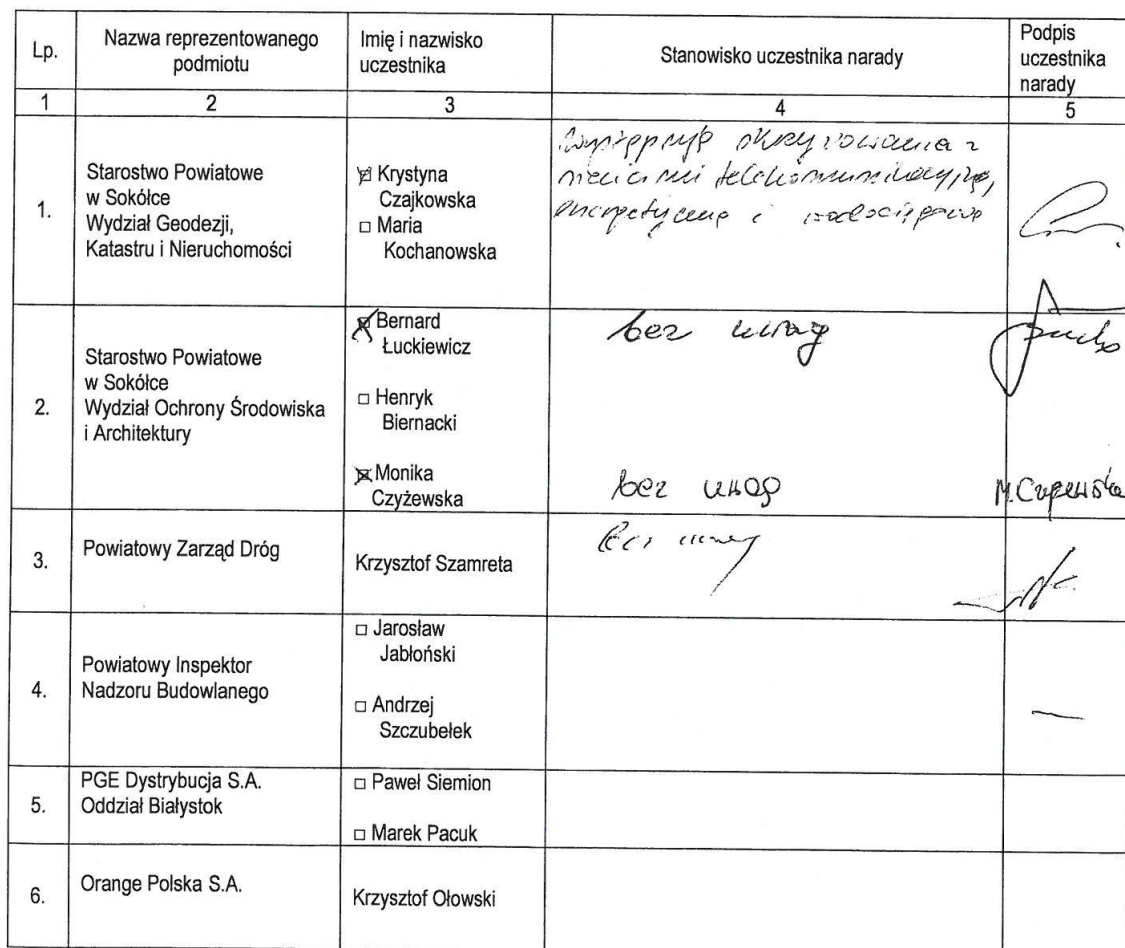 Lp.
Nazwa reprezentowanego
podmiotu
Imię i nazwisko
uczestnika
Stanowisko uczestnika narady
Podpis
uczestnika
narady
1
2
3
4
5
1.
Starostwo Powiatowe
w Sokółce
Wydział Geodezji,
Katastru i Nieruchomości
Krystyna
Czajkowska
□ Maria
Kochanowska
Występują skrzyżowania z
sieciami telekomunikacyjną,
energetyczną i wodociągową
2.
Starostwo Powiatowe
w Sokółce
Wydział Ochrony Środowiska
i Architektury
Bernard
Łuckiewicz
□ Henryk
Biernacki
Monika
Czyżewska
bez uwag
bez uwag
M.Czyżewska
3.
Powiatowy Zarząd Dróg
Krzysztof Szamreta
bez uwag
4.
Powiatowy Inspektor
Nadzoru Budowlanego
□ Jarosław
Jabłoński
□ Andrzej
Szczubełek
—
5.
PGE Dystrybucja S.A.
Oddział Białystok
□ Paweł Siemion
□ Marek Pacuk
6.
Orange Polska S.A.
Krzysztof Ołowski